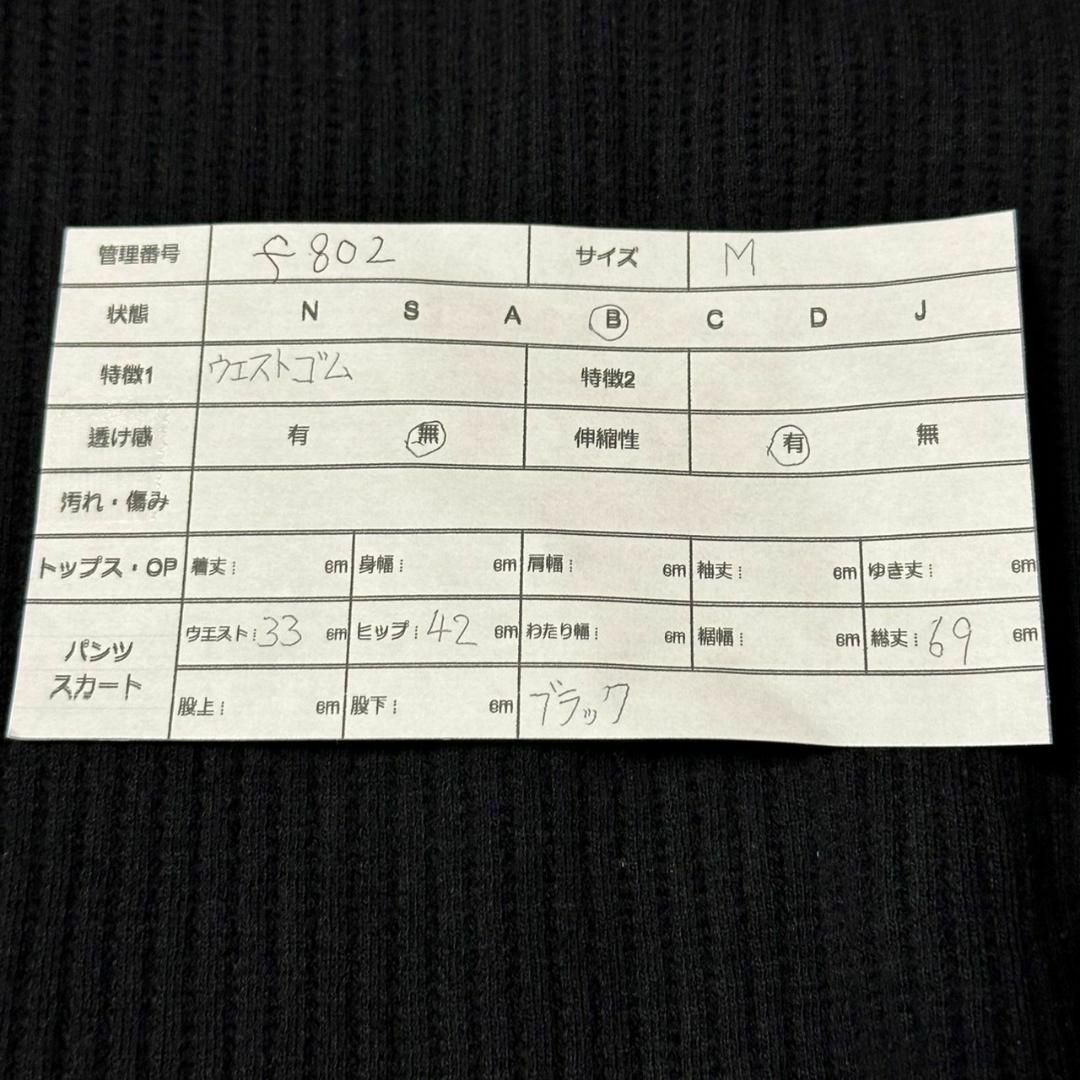 管理番号 f802 サイズ M
状態 N S A B C D J
特徴1 ウエストゴム 特徴2
透け感 有 無 伸縮性 有 無
汚れ・傷み
トップス・OP 着丈: cm 身幅: cm 肩幅: cm 袖丈: cm ゆき丈: cm
パンツ
スカート
ウエスト:33 cm ヒップ:42 cm わたり幅: cm 裾幅: cm 総丈:69 cm
股上: cm 股下: cm ブラック